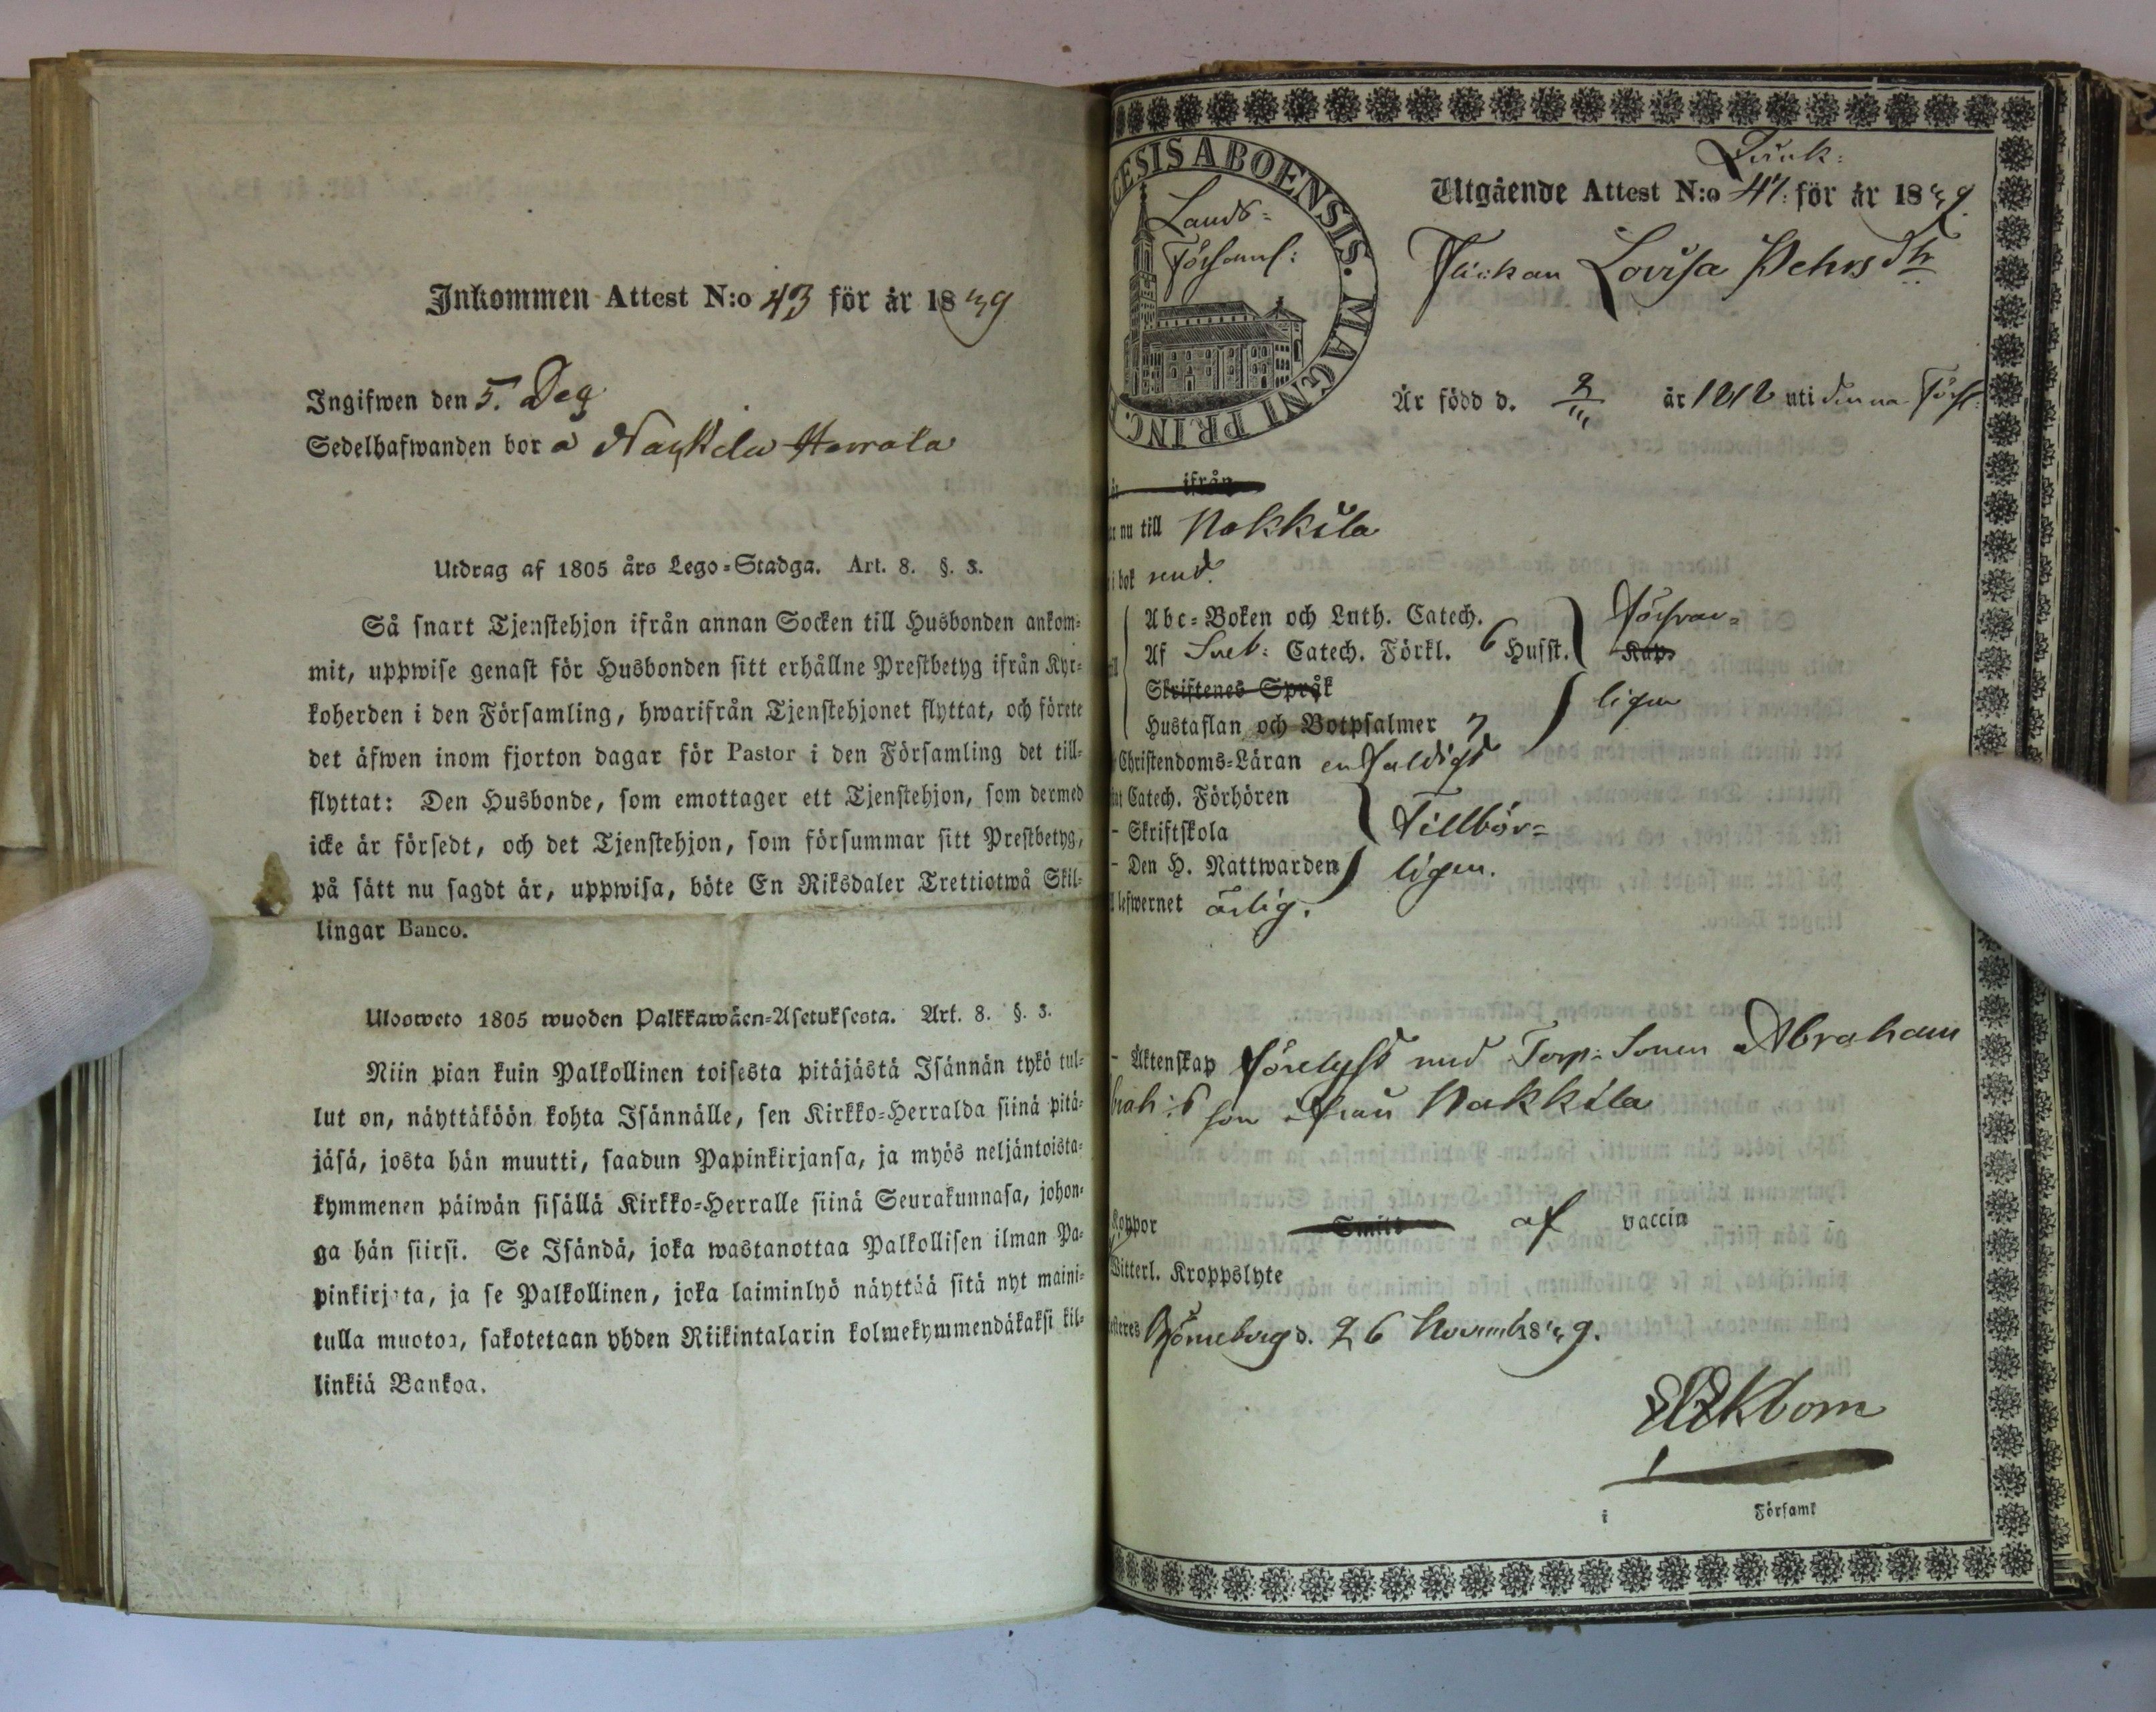 Inkommen Attest N:o 43 för år 1839
Ingifwen den 5. Dec
Sedelhafwanden bor a
Utdrag af 1805 års Lego-Stadga. Art. 8. §. 3.
Så snart Tjenstehjon ifrån annan Socken till Husbonden ankom-
mit, uppwise genast för Husbonden sitt erhållne Prestbetyg ifrån Kyr-
koherden i den Församling, hwarifrån Tjenstehjonet flyttat, och förete
det äfwen inom fjorton dagar för Pastor i den Församling det till-
flyttat: Den Husbonde, som emottager ett Tjenstehjon, som dermed
icke är försedt, och det Tjenstehjon, som försummar sitt Prestbetyg,
på sätt nu sagdt är, uppwisa, böte En Riksdaler Trettiotwå Skil-
lingar Banco.
Ulosweto 1805 wuoden Palkkawäen-Asetuksesta. Art. 8. §. 3.
Niin pian kuin Palkollinen toisesta pitäjästä Isännän tykö tul-
lut on, näyttäköön kohta Isännälle, sen Kirkko-Herralda siinä pitä-
jäsä, josta hän muutti, saadun Papinkirjansa, ja myös neljäntoista-
kymmenen päiwän sisällä Kirkko-Herralle siinä Seurakunnasa, johon-
ga hän siirsi. Se Isändä, joka wastanottaa Palkollisen ilman Pa-
pinkirjata, ja se Palkollinen, joka laiminlyö näyttää sitä nyt maini-
tulla muotoa, sakotetaan yhden Riikintalarin kolmekymmendäkaksi kil-
linkiä Bankoa.
CESIS ABOENSIS. MAGNI PRINC.
Lands-
Församl:
Utgående Attest N:o 47. för år 1839.
Flickan Lovisa Pehrs Dtr
Är född d. 2/11 år 1812 uti denna Förs:
ifrån
nu till Nakkila
i bok
Abc-Boken och Luth. Catech. Försvar-
Af Sveb: Catech. Förkl. 6 Husst. Kap.
Skriftenes Språk
Hustaflan och Botpsalmer 7 ligen
Christendoms-Läran enfaldigt
Catech. Förhören
- Skriftskola Tillbör-
- Den H. Nattwarden ligen.
lefwernet ärlig.
- Äktenskap förelyst med Torp: Sonen Abraham
son ifrån Nakkila
Koppor Smitt af vaccin
Witterl. Kroppslyte
Björneborg d. 26 Novemb 1839.
Ekbom
i Församl